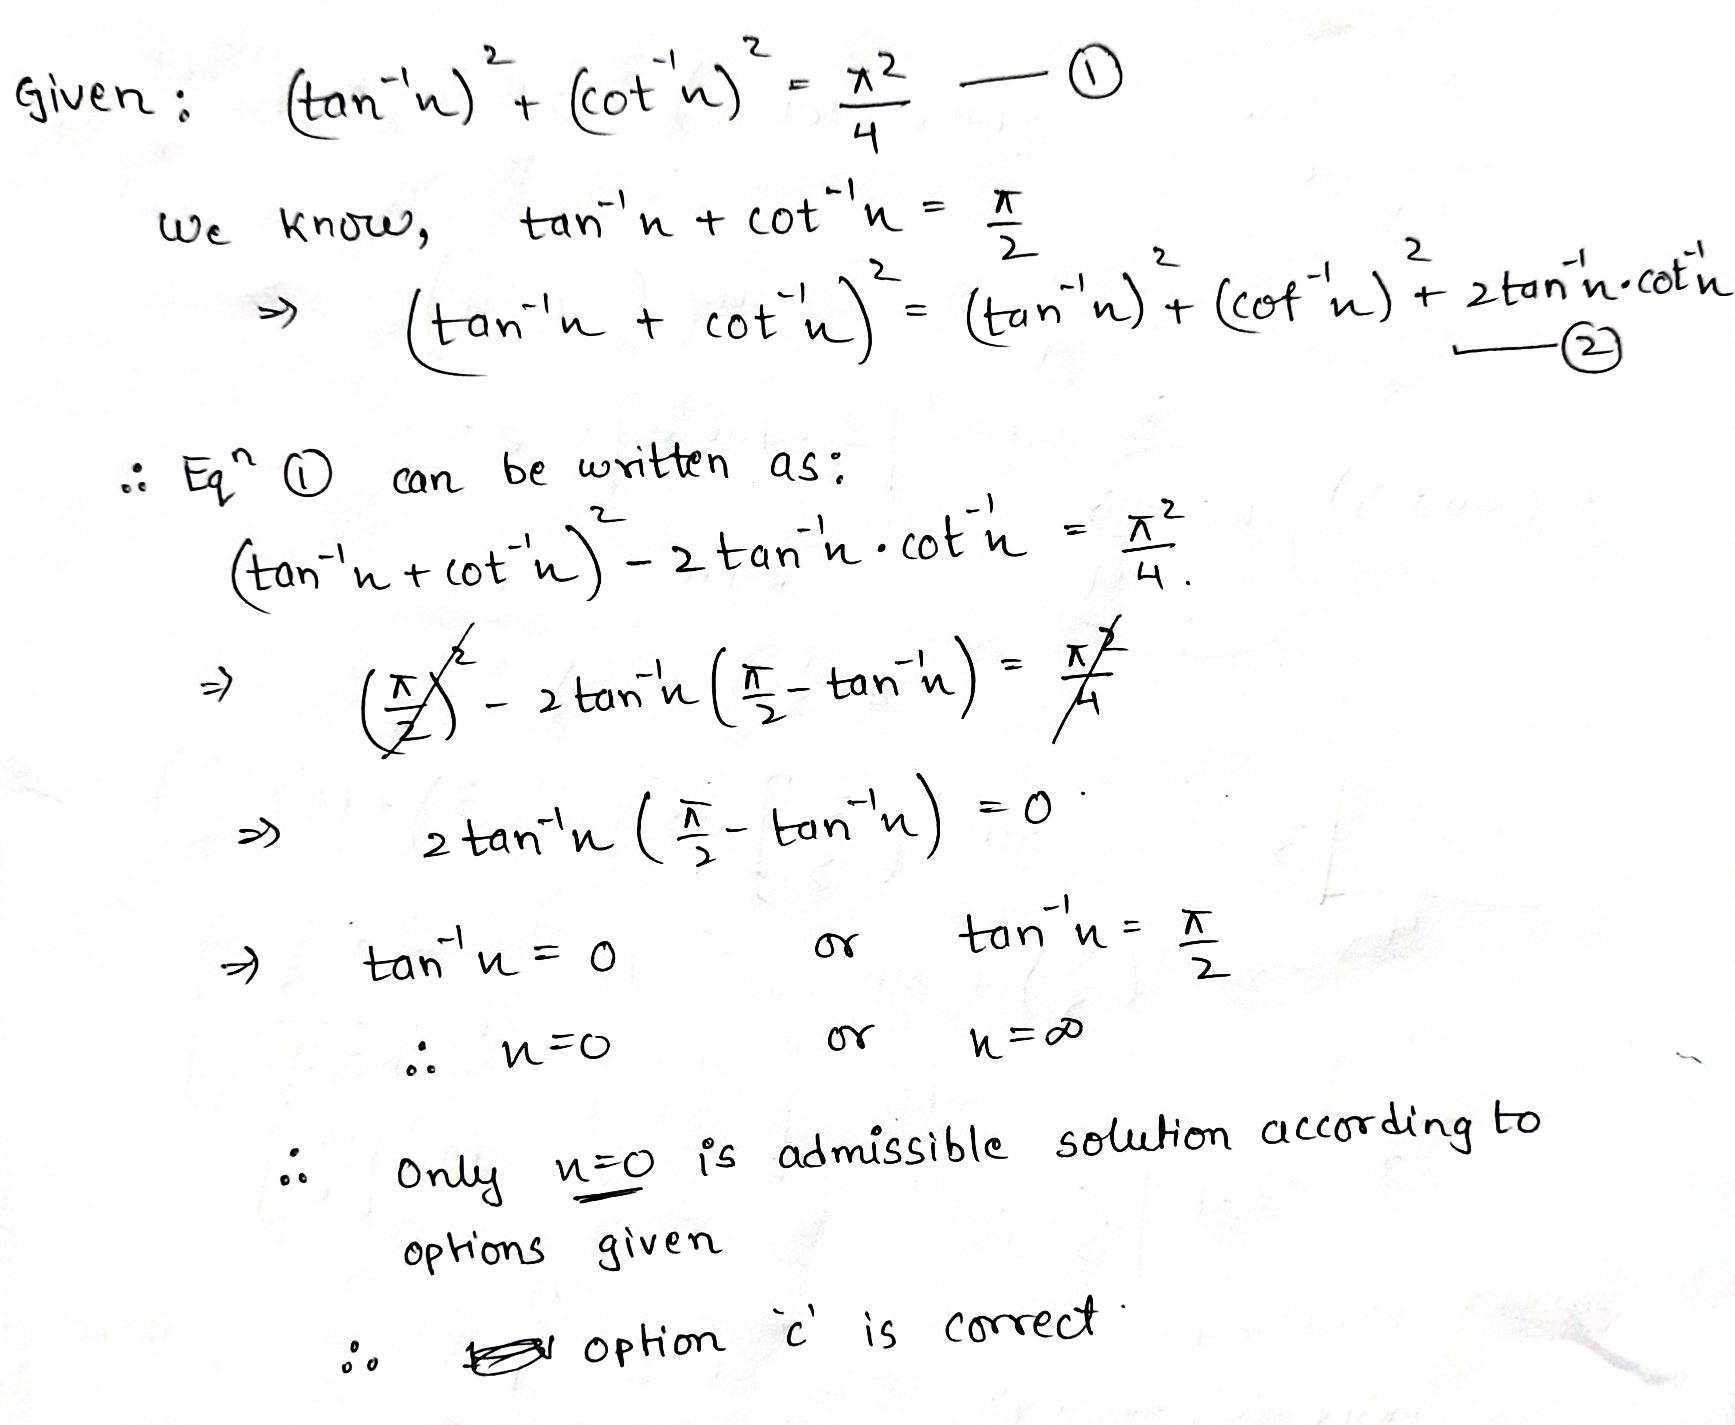 Given : (tan⁻¹x)² + (cot⁻¹x)² = π²/4 — ①
We know, tan⁻¹x + cot⁻¹x = π/2
⇒ (tan⁻¹x + cot⁻¹x)² = (tan⁻¹x)² + (cot⁻¹x)² + 2tan⁻¹x·cot⁻¹x
— ②
∴ Eqⁿ ① can be written as:
(tan⁻¹x + cot⁻¹x)² - 2 tan⁻¹x · cot⁻¹x = π²/4.
⇒ (π/2)² - 2 tan⁻¹x (π/2 - tan⁻¹x) = π²/4
⇒ 2 tan⁻¹x (π/2 - tan⁻¹x) = 0
⇒ tan⁻¹x = 0 or tan⁻¹x = π/2
∴ x=0 or x=∞
∴ Only x=0 is admissible solution according to
options given
∴ option 'c' is correct.